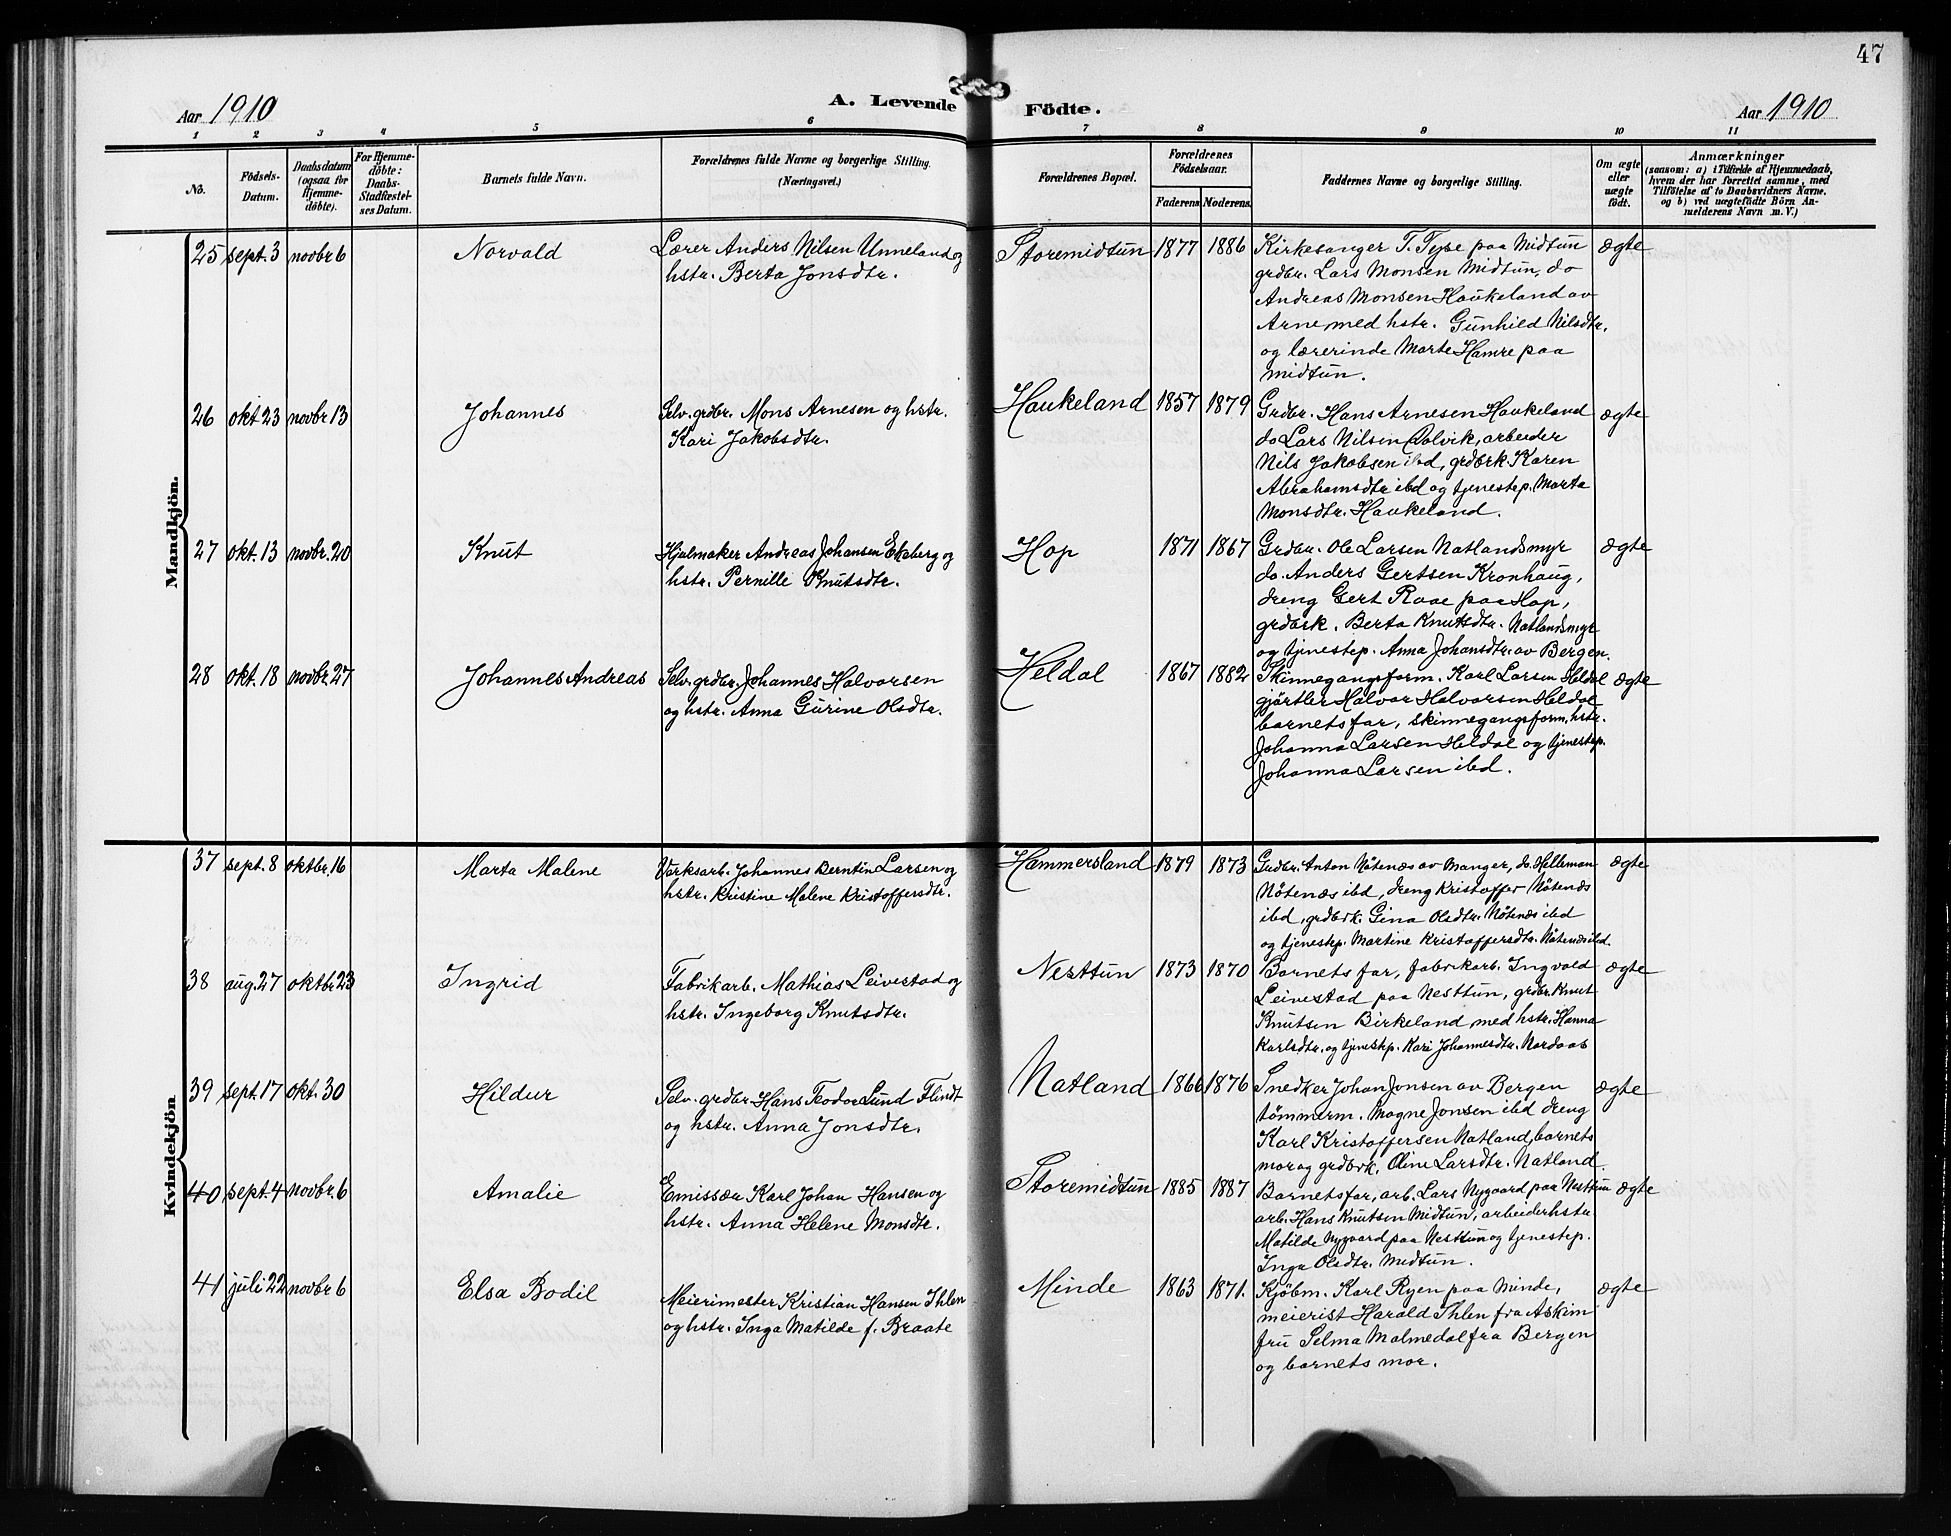 47
Aar 1910
A. Levende Födte.
Aar 1910
1 2 3 4 5 6 7 8 9 10 11
No.
Födsels-Datum.
Daabsdatum (ogsaa for Hjemme-döbte).
For Hjemme-döbte: Daabs-Stadfæstel-ses Datum.
Barnets fulde Navn.
Forældrenes fulde Navne og borgerlige Stilling. (Næringsvei.)
Forældrenes Bopæl.
Forældrenes Födselsaar.
Faderens. Moderens.
Faddernes Navne og borgerlige Stilling.
Om ægte eller uægte födt.
Anmærkninger
(saasom: a) i Tilfælde af Hjemmedaab,
hvem der har forrettet samme, med
Tilföielse af to Daabsvidners Navne,
og b) ved uægtefödte Börn An-
melderens Navn m. V.)
Mandkjön.
25 sept. 3 novbr 6 Norvald
Lærer Anders Nilsen Unneland og
hstr. Berta Jonsdtr.
Storemidtun 1877 1886
Kirkesanger T. Tyse paa Midtun
grdbr. Lars Monsen Midtun, do
Andreas Monsen Haukeland av
Arne med hstr. Gunhild Nilsdtr.
og lærerinde Marte Hamre paa
midtun.
ægte
26 okt 23 novbr 13 Johannes
Selv. grdbr. Mons Arnesen og hstr.
Kari Jakobsdtr.
Haukeland 1857 1879
Grdbr. Hans Arnesen Haukeland
do Lars Nilsen Dolvik, arbeider
Nils Jakobsen ibd, grdbrk. Karen
Abrahamsdtr ibd og tjenestep. Marta
Monsdtr. Haukeland.
ægte
27 okt. 13 novbr. 20 Knut
Hjulmaker Andreas Johansen Ekeberg og
hstr. Pernille Knutsdtr.
Hop 1871 1867
Grdbr. Ole Larsen Natlandsmyr
do. Anders Gertsen Kronhaug,
dreng Gert Raae paa Hop,
grdbrk. Berta Knutsdtr. Natlandsmyr
og tjenestep. Anna Johansdtr. av Bergen.
ægte
28 okt. 18 novbr. 27 Johannes Andreas
Selv. grdbr. Johannes Halvorsen
og hstr. Anna Gurine Olsdtr.
Heldal 1867 1882
Skinnegangsform. Karl Larsen Heldal
gjørtler Halvor Halvorsen Heldal
barnets far, skinnegangsform. hstr.
Johanna Larsen Heldal og tjenestep.
Johanna Larsen ibd.
ægte
Kvindekjön
37 sept. 8 oktbr. 16 Marta Malene
Verksarb. Johannes Berntin Larsen og
hstr. Kristine Malene Kristoffersdtr.
Hammersland 1879 1873
Grdbr. Anton Nötenæs av Manger, do. Helleman
Nötenæs ibd, dreng Kristoffer Nötenæs
ibd, grdbrk. Gina Olsdtr. Nötenæs ibd
og tjenestep. Martine Kristoffersdtr. Nötenæs ibd.
ægte
38 aug. 27 oktbr 23 Ingrid
Fabrikarb. Mathias Leivestad og
hstr. Ingeborg Knutsdtr.
Nesttun 1873 1870
Barnets far, fabrikarb. Ingvald
Leivestad paa Nesttun, grdbr. Knut
Knutsen Birkeland med hstr. Hanna
Karlsdtr. og tjenestep. Kari Johannesdtr. Nordaas
ægte
39 sept. 17 okt. 30 Hildur
Selv. grdbr Hans Teodor Lund Flindt
og hstr. Anna Jonsdtr.
Natland 1866 1876
Snedker Johan Jonsen av Bergen
tömmerm. Magne Jonsen ibd dreng
Karl Kristoffersen Natland, barnets
mor og grdbrk. Oline Larsdtr. Natland.
ægte
40 sept. 4 novbr. 6 Amalie
Emissær Karl Johan Hansen og
hstr. Anna Helene Monsdtr.
Storemidtun 1885 1887
Barnets far, arb. Lars Nygaard paa Nesttun
arb. Hans Knutsen Midtun, arbeiderhstr.
Matilde Nygaard paa Nesttun og tjenestep.
Inga Olsdtr. Midtun.
ægte
41 juli 22 novbr 6 Elsa Bodil
Meierimester Kristian Hansen Ihlen
og hstr. Inga Matilde f. Braate
Minde 1863 1871.
Kjøbm. Karl Ryen paa Minde,
meierist Harald Ihlen fra Askim
fru Selma Malmedal fra Bergen
og barnets mor.
ægte